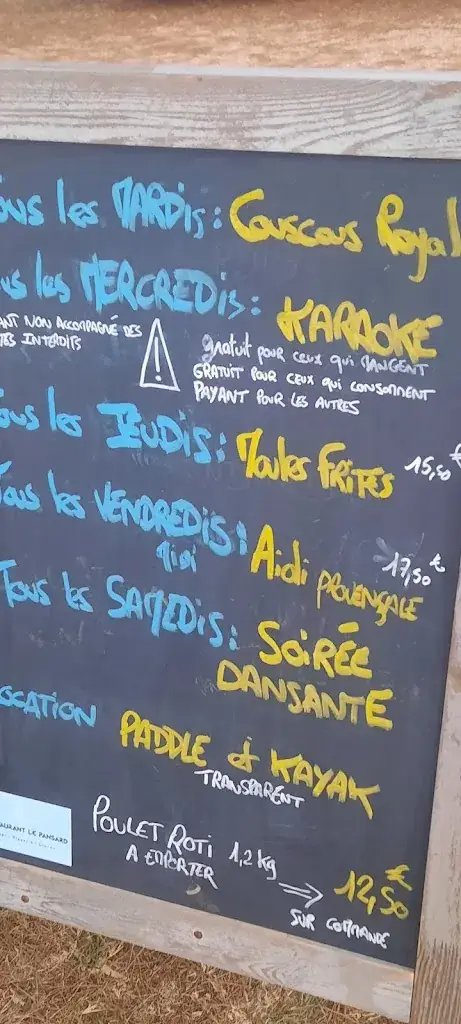 ous les MARDis: Couscous Royal
us les MERCREDis: KARAOKE
ANT NON ACCOMPAGNÉ DES
TES INTERDITS
gratuit pour ceux qui MANGENT
GRATUIT POUR CEUX QUI CONSOMMENT
PAYANT POUR LES AUTRES
ous les JEUDIS: Moules FRITES 15,50 €
Tous les VENDREDIS: Aidi PROVENÇALE 17,50 €
Midi
Tous les SAMEDIS: SOIRÉE
DANSANTE
OCATION PADDLE & KAYAK
TRANSPARENT
AURANT LE PANSARD
POULET ROTI 1,2 Kg
A EMPORTER
12,50 €
SUR COMMANDE